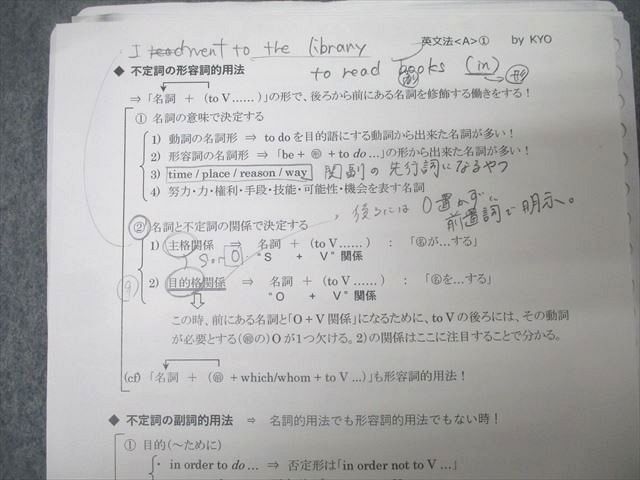 英文法<A>① by KYO
I went to the library
to read books (in) 副 形
◆ 不定詞の形容詞的用法
⇒ 「名詞 + (to V ……)」の形で、後ろから前にある名詞を修飾する働きをする!
① 名詞の意味で決定する
1) 動詞の名詞形 ⇒ to do を目的語にする動詞から出来た名詞が多い!
2) 形容詞の名詞形 ⇒ 「be + 形 + to do …」の形から出来た名詞が多い!
3) time / place / reason / way 関副の先行詞になるやつ
4) 努力・力・権利・手段・技能・可能性・機会を表す名詞
後ろには O置かずに
前置詞で明示へ。
② 名詞と不定詞の関係で決定する
1) 主格関係 ⇒ 名詞 + (to V ……) : 「名が…する」
S or O
"S + V" 関係
2) 目的格関係 ⇒ 名詞 + (to V ……) : 「名を…する」
"O + V" 関係
この時、前にある名詞と「O + V 関係」になるために、to V の後ろには、その動詞
が必要とする(前の) O が1つ欠ける。2)の関係はここに注目することで分かる。
(cf) 「名詞 + (前 + which/whom + to V …)」も形容詞的用法!
◆ 不定詞の副詞的用法 ⇒ 名詞的用法でも形容詞的用法でもない時!
① 目的(~ために)
・ in order to do … ⇒ 否定形は「in order not to V …」